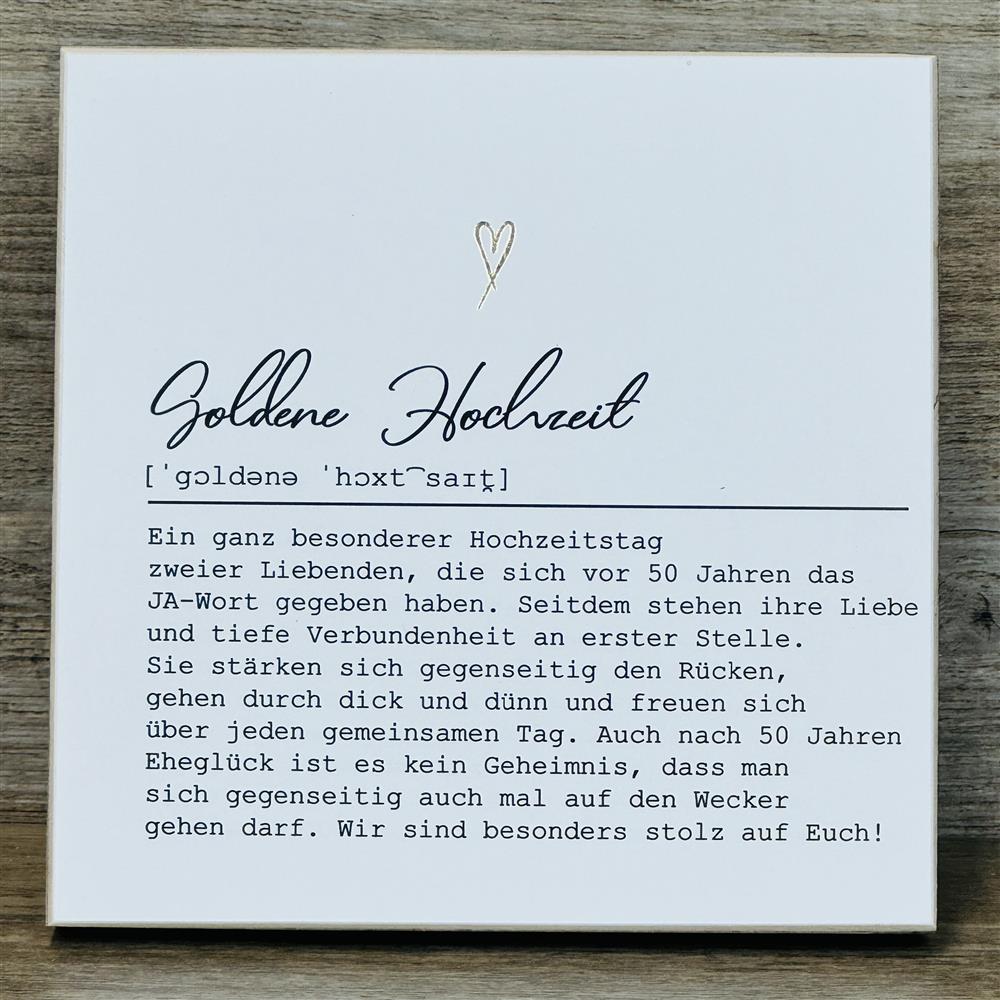 Goldene Hochzeit
[ˈɡɔldənə ˈhɔxt͡saɪt̯]
Ein ganz besonderer Hochzeitstag
zweier Liebenden, die sich vor 50 Jahren das
JA-Wort gegeben haben. Seitdem stehen ihre Liebe
und tiefe Verbundenheit an erster Stelle.
Sie stärken sich gegenseitig den Rücken,
gehen durch dick und dünn und freuen sich
über jeden gemeinsamen Tag. Auch nach 50 Jahren
Eheglück ist es kein Geheimnis, dass man
sich gegenseitig auch mal auf den Wecker
gehen darf. Wir sind besonders stolz auf Euch!